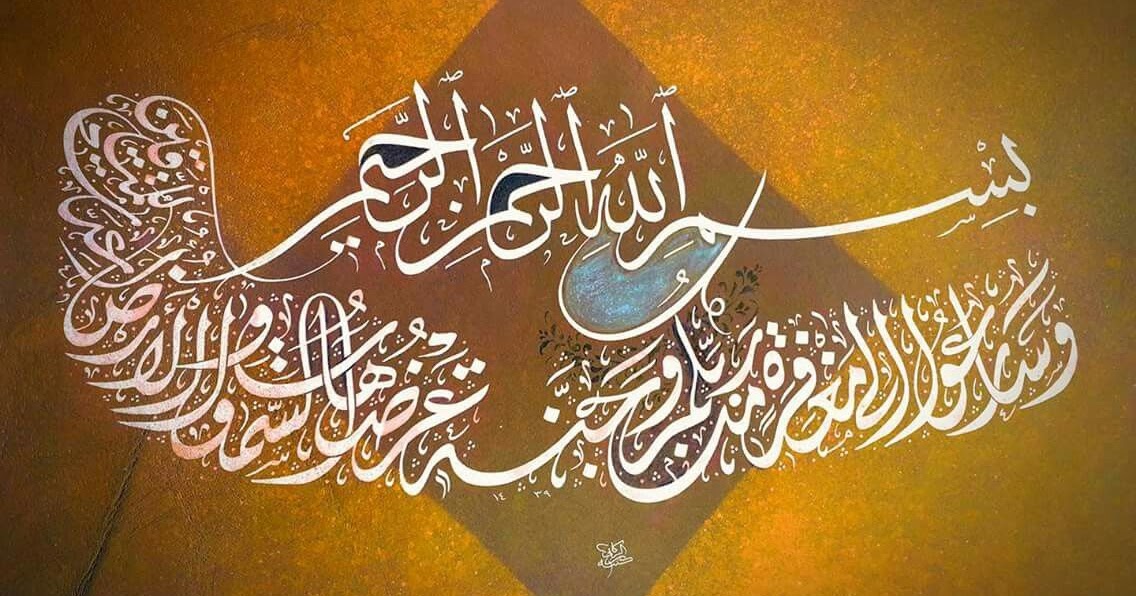 بِسْمِ اللَّهِ الرَّحْمَٰنِ الرَّحِيمِ
وَسَارِعُوا إِلَىٰ مَغْفِرَةٍ مِنْ رَبِّكُمْ وَجَنَّةٍ عَرْضُهَا السَّمَاوَاتُ وَالْأَرْضُ أُعِدَّتْ لِلْمُتَّقِينَ
١٤٣٩